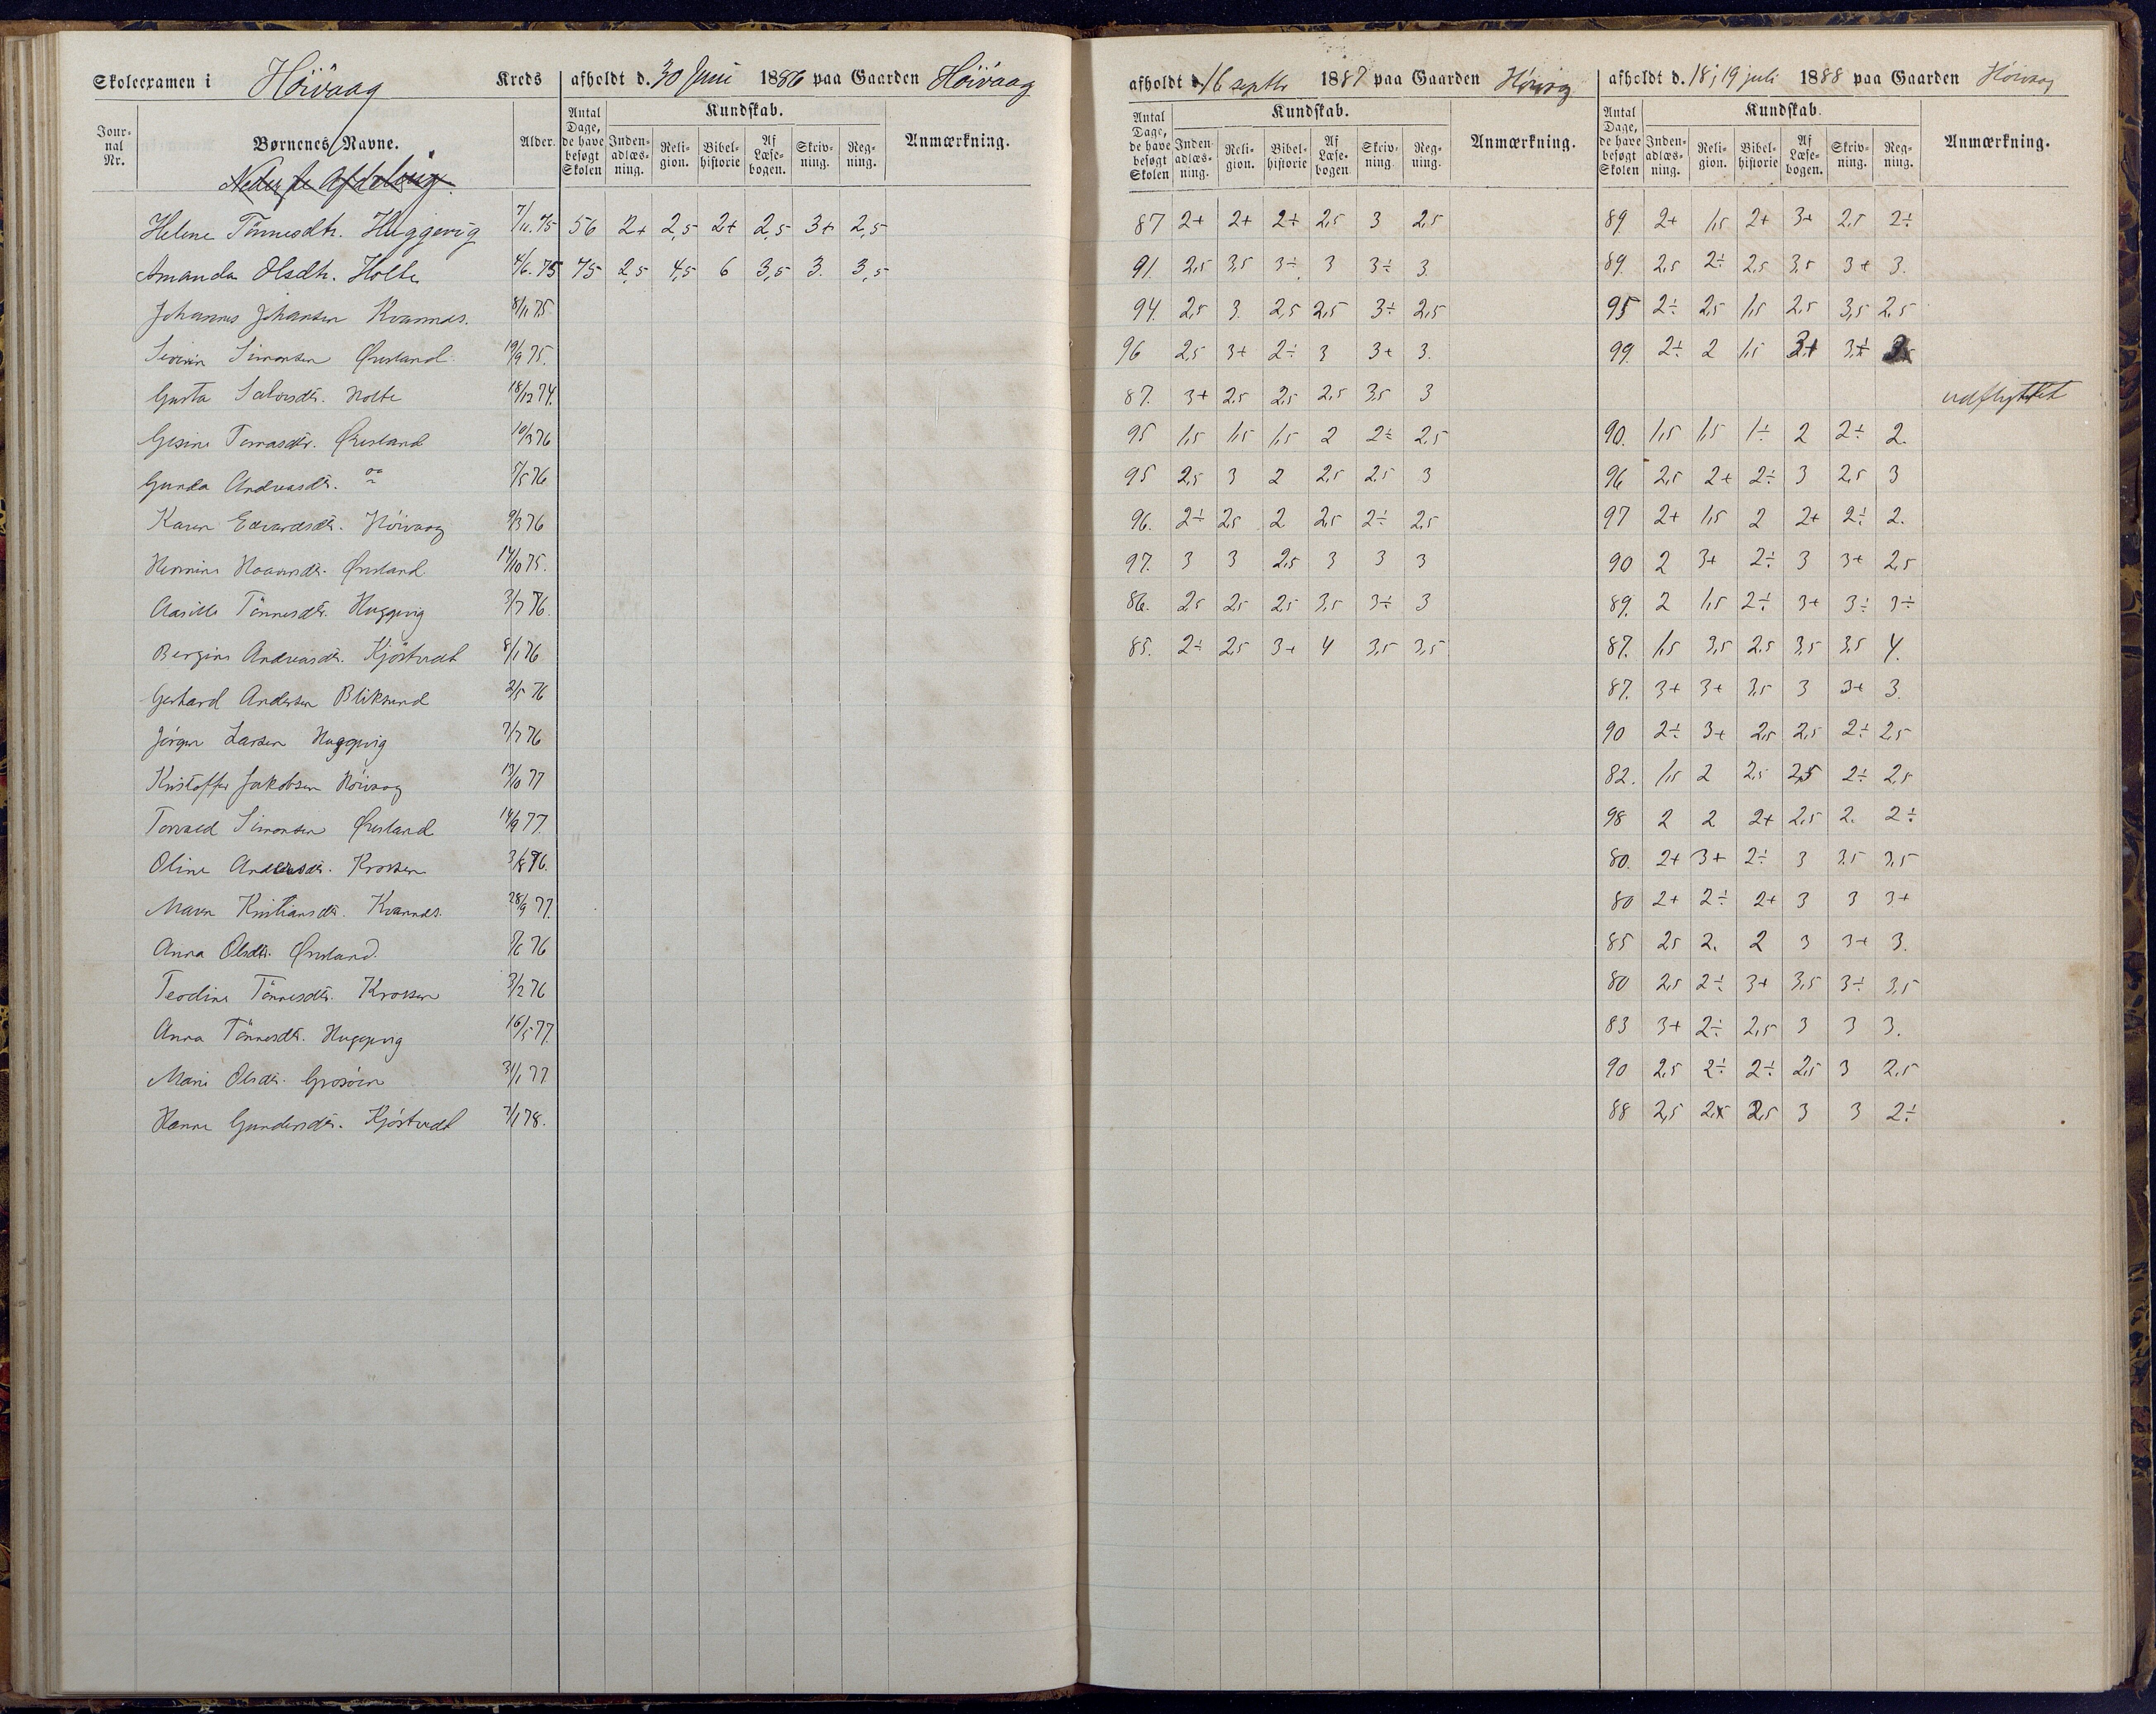 Skoleexamen i Höivaag Kreds afholdt d. 30 Juni 1886 paa Gaarden Höivaag afholdt d. 16 septbr 1887 paa Gaarden Höivaag afholdt d. 18 ; 19 juli 1888 paa Gaarden Höivaag
Jour-nal Nr. Børnenes Navne. Alder. Antal Dage, de have besøgt Skolen Kundskab. Inden-adlæs-ning. Reli-gion. Bibel-historie Af Læse-bogen. Skriv-ning. Reg-ning. Anmærkning. Antal Dage, de have besøgt Skolen Kundskab. Inden-adlæs-ning. Reli-gion. Bibel-historie Af Læse-bogen Skriv-ning. Reg-ning. Anmærkning. Antal Dage, de have besøgt Skolen Kundskab. Inden-adlæs-ning. Reli-gion. Bibel-historie Af Læse-bogen. Skriv-ning. Reg-ning. Anmærkning.
Nederste Afdeling.
Helene Tönnesdtr. Huggevig 7/11. 75 56 2+ 2,5 2+ 2,5 3+ 2,5 87 2+ 2+ 2÷ 2,5 3 2,5 89. 2+ 1,5 2+ 3+ 2,5 2÷
Amanda Olsdtr. Holte 4/6. 75 75 2,5 4,5 6 3,5 3. 3,5 91. 2,5 3,5 3÷ 3 3÷ 3. 89. 2,5 2÷ 2,5 3,5 3+ 3.
Johannes Johansen Kvannes. 8/11 75. 94. 2,5 3. 2,5 2,5 3÷ 2,5 95 2÷ 2,5 1,5 2,5 3,5 2,5
Simonsen Øresland. 19/9 75. 96 2,5 3+ 2÷ 3 3+ 3. 99. 2÷ 2 1,5 3+ 3+
Gusta Salvesdtr. Holte 18/12 74. 87. 3+ 2,5 2,5 2,5 3,5 3 udflyttet
Gesine Tomasdtr. Øresland 10/3 76 95 1,5 1,5 1,5 2 2÷ 2,5 90. 1,5 1,5 1÷ 2 2÷ 2.
Gunda Andreasdtr. 5/5 76 95 2,5 3 2 2,5 2,5 3 96 2,5 2+ 2÷ 3 2,5 3
Karen Edvardsdtr. Höivaag 9/3 76 96. 2÷ 2,5 2 2,5 2÷ 2,5 97 2+ 1,5 2 2+ 2÷ 2.
Øresland 14/10 75. 97. 3 3 2,5 3 3 3 90 2 3+ 2÷ 3 3+ 2,5
Aasille Tönnesdtr. Huggevig 3/7 76. 86. 2,5 2,5 2,5 3,5 3÷ 3 89. 2 1,5 2÷ 3+ 3÷ 3÷
Bergine Andreasdtr. Kjöstvedt 8/1 76 85. 2÷ 2,5 3+ 4 3,5 3,5 87. 1,5 3,5 2,5 3,5 3,5 4.
Gerhard Andersen Bliksund 2/5 76 87. 3+ 3+ 3,5 3 3+ 3.
Jörgen Larsen Huggevig 7/7 76 90 2÷ 3+ 2,5 2,5 2÷ 2,5
Kristoffer Jakobsen Höivaag 13/10 77 82. 1,5 2 2,5 2,5 2÷ 2,5
Torvald Simonsen Øresland 14/9 77. 98 2 2 2+ 2,5 2. 2÷
Oline Andersdtr. Krossen 3/8 76. 80. 2+ 3+ 2÷ 3 3,5 3,5
Maren Kristiansdtr. Kvannes. 28/9 77. 80 2+ 2÷ 2+ 3 3 3+
Anna Olsdtr. Øresland. 5/6 76 85 2,5 2. 2 3 3+ 3.
Teodine Tönnesdtr. Krossen 3/2 76 80 2,5 2÷ 3+ 3,5 3÷ 3,5
Anna Tönnesdtr. Huggevig 16/5 77. 83 3+ 2÷ 2,5 3 3 3.
Marie Olsdtr. Grosöien 31/1 77 90 2,5 2÷ 2÷ 2,5 3 2,5
Hanne Gundersdtr. Kjöstvedt 7/1 78. 88 2,5 2,5 2,5 3 3 2÷